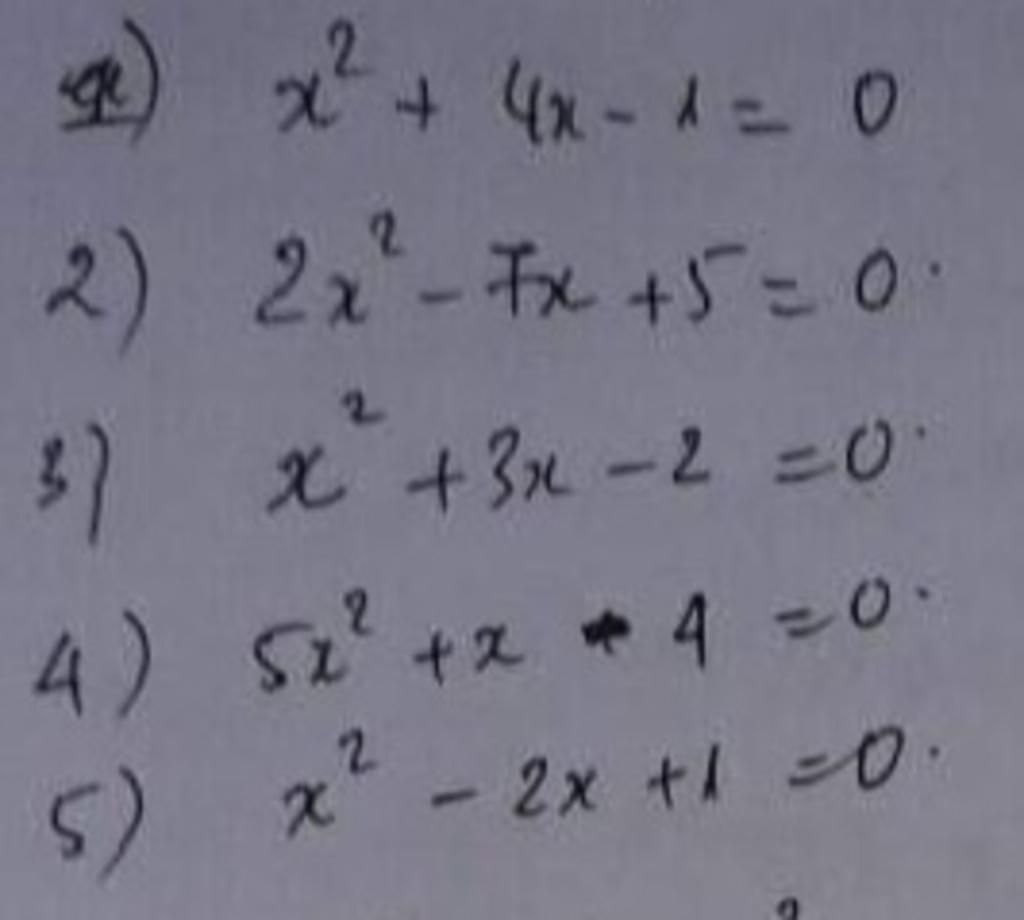 x² + 4x - 1 = 0
2) 2x² - 7x + 5 = 0.
3) x² + 3x - 2 = 0.
4) 5x² + x - 4 = 0.
5) x² - 2x + 1 = 0.